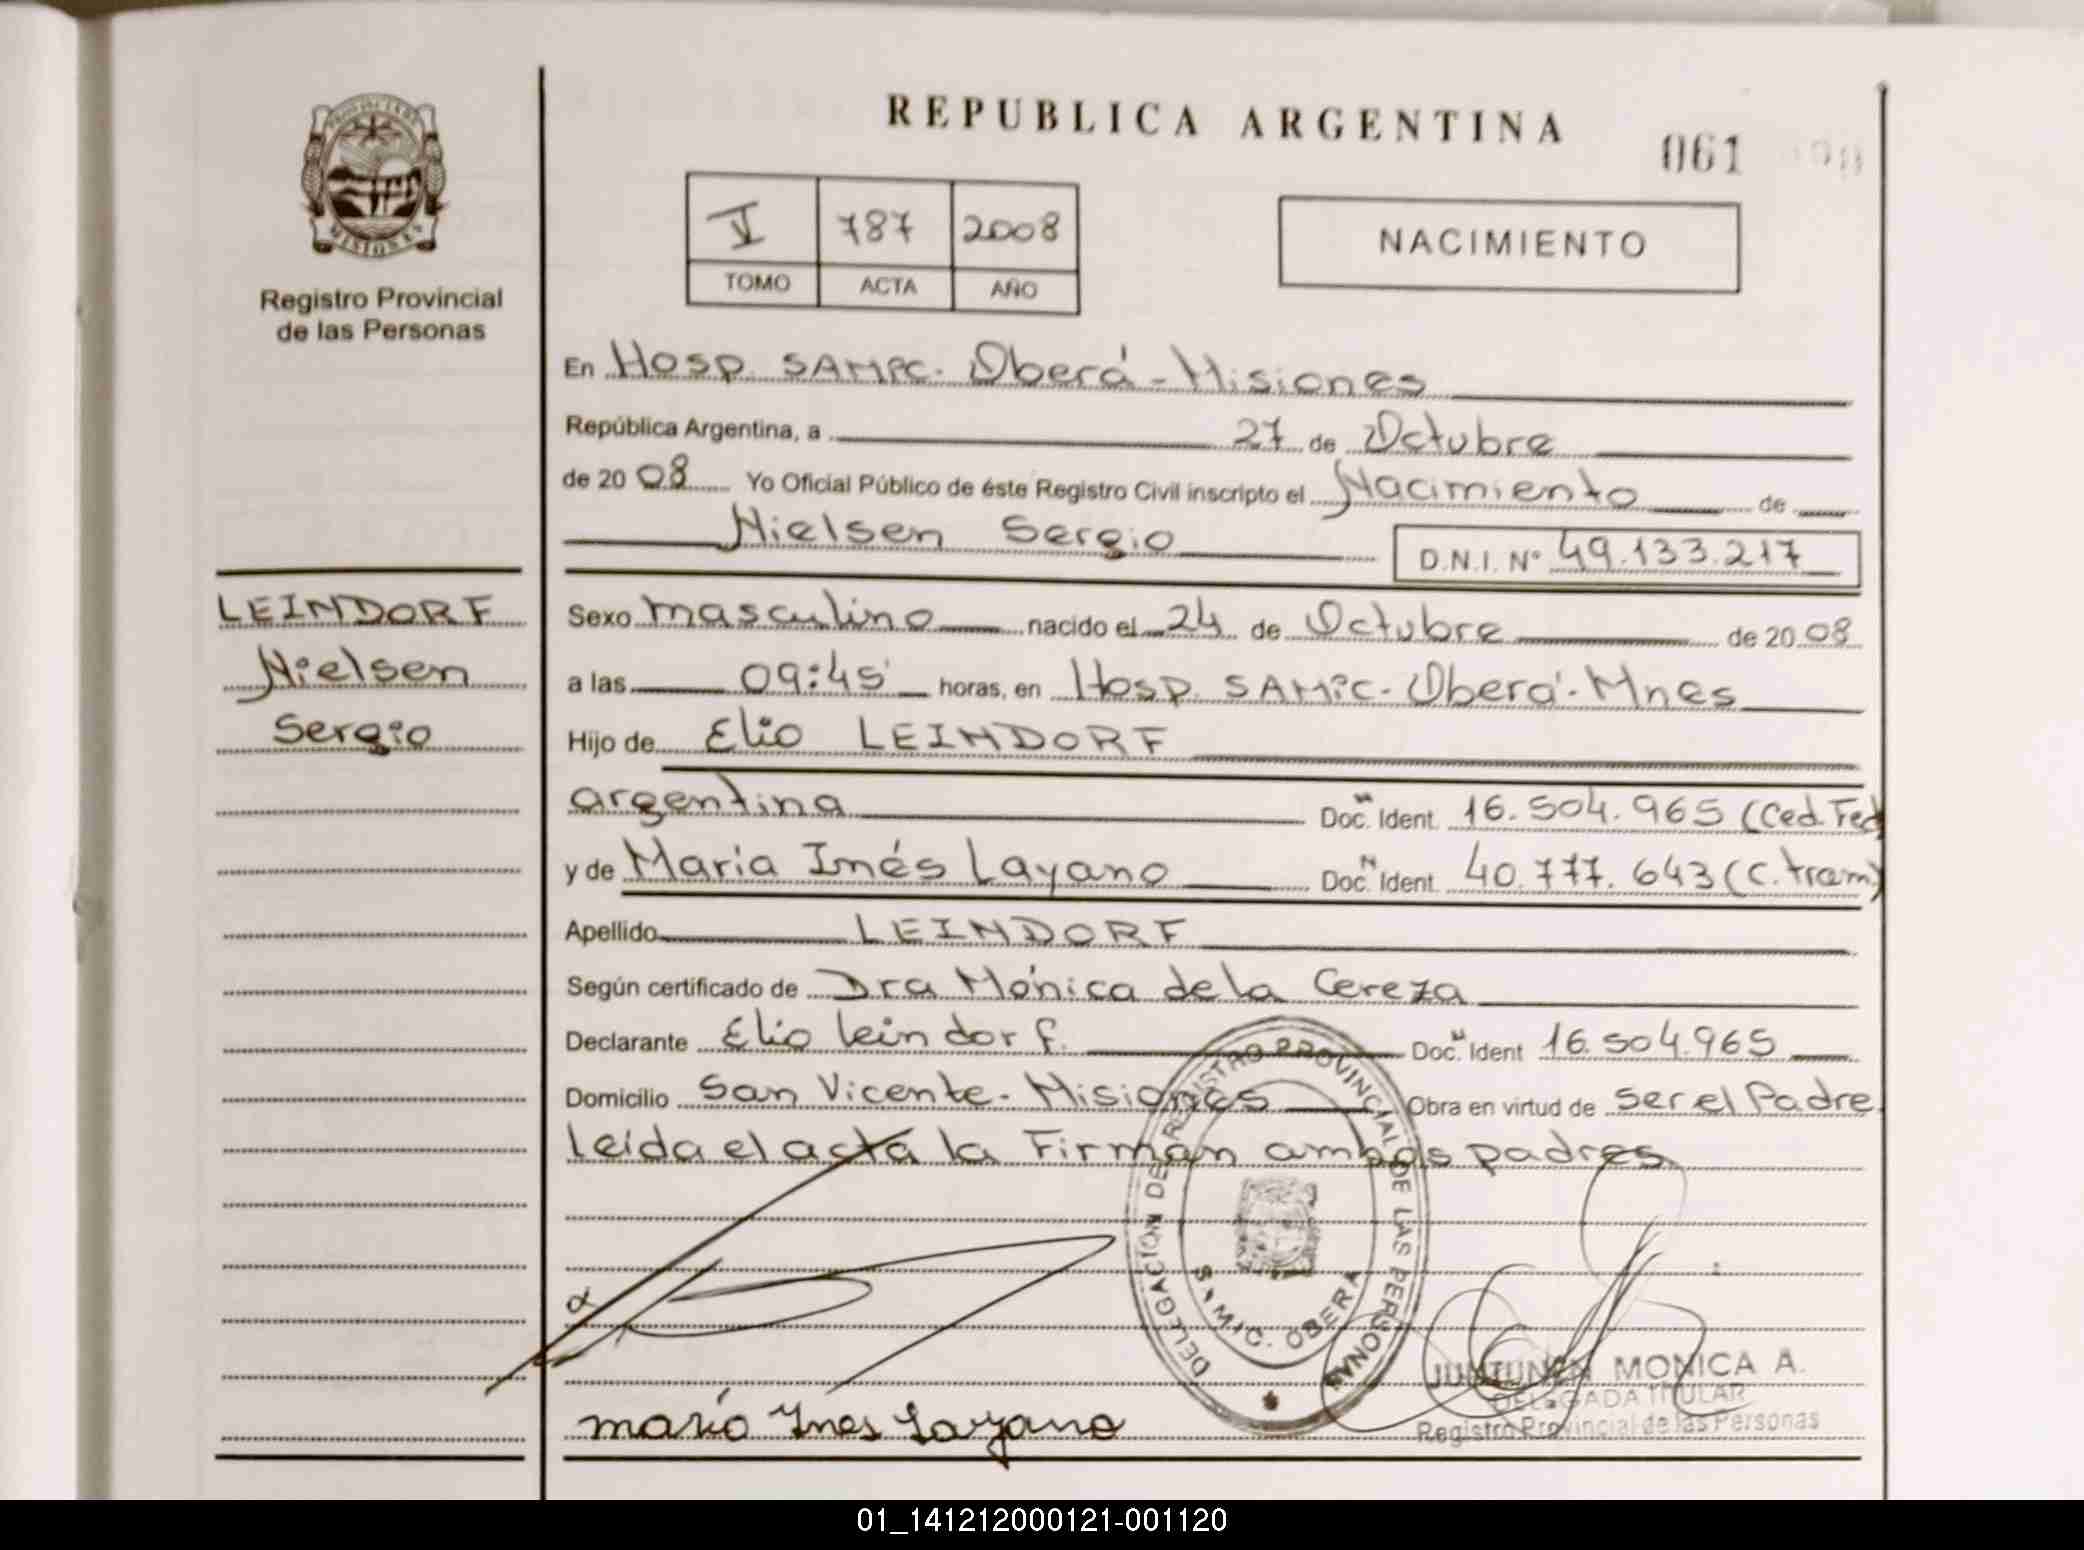 REPUBLICA ARGENTINA
061
MISIONES
Registro Provincial
de las Personas
V 787 2008
TOMO ACTA AÑO
NACIMIENTO
En Hosp. SAMIC. Oberá - Misiones
República Argentina, a 27 de Octubre
de 20 08 Yo Oficial Público de éste Registro Civil inscripto el Nacimiento de
Nielsen Sergio D.N.I. N° 49.133.217
LEINDORF
Nielsen
Sergio
Sexo masculino nacido el 24 de Octubre de 20 08
a las 09:45 horas, en Hosp. SAMIC. Oberá - Mnes
Hijo de Elio LEINDORF
argentina Doc. Ident. 16.504.965 (Ced. Fed
y de Maria Inés Layano Doc. Ident. 40.777.643 (C. tram)
Apellido LEINDORF
Según certificado de Dra Mónica de la Cereza
Declarante Elio leindorf. Doc. Ident 16.504.965
Domicilio San Vicente - Misiones Obra en virtud de ser el Padre
leida el acta la Firman ambos padres
DELEGACION DEL REGISTRO PROVINCIAL DE LAS PERSONAS
OBERA
maria Ines Layano
MONICA A.
DELEGADA TITULAR
Registro Provincial de las Personas
01_141212000121-001120